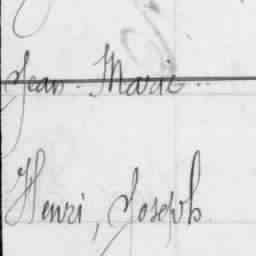 Jean-Marie.
Henri, Joseph